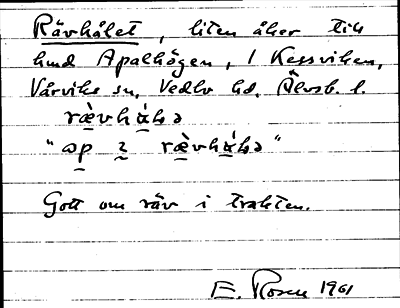 Rävhålet, liten åker till
hmd Apalhögen, 1 Kessviken,
Vårviks sn, Vedbo hd, Älvsb. l.
rævhàlə
"ɔp i rævhàlə"
Gott om räv i trakten.
E. Rosen 1961